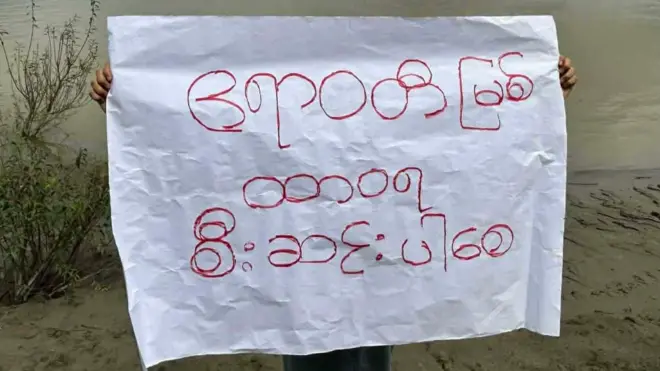 ဧရာဝတီမြစ်
ထာဝရ
စီးဆင်းပါစေ